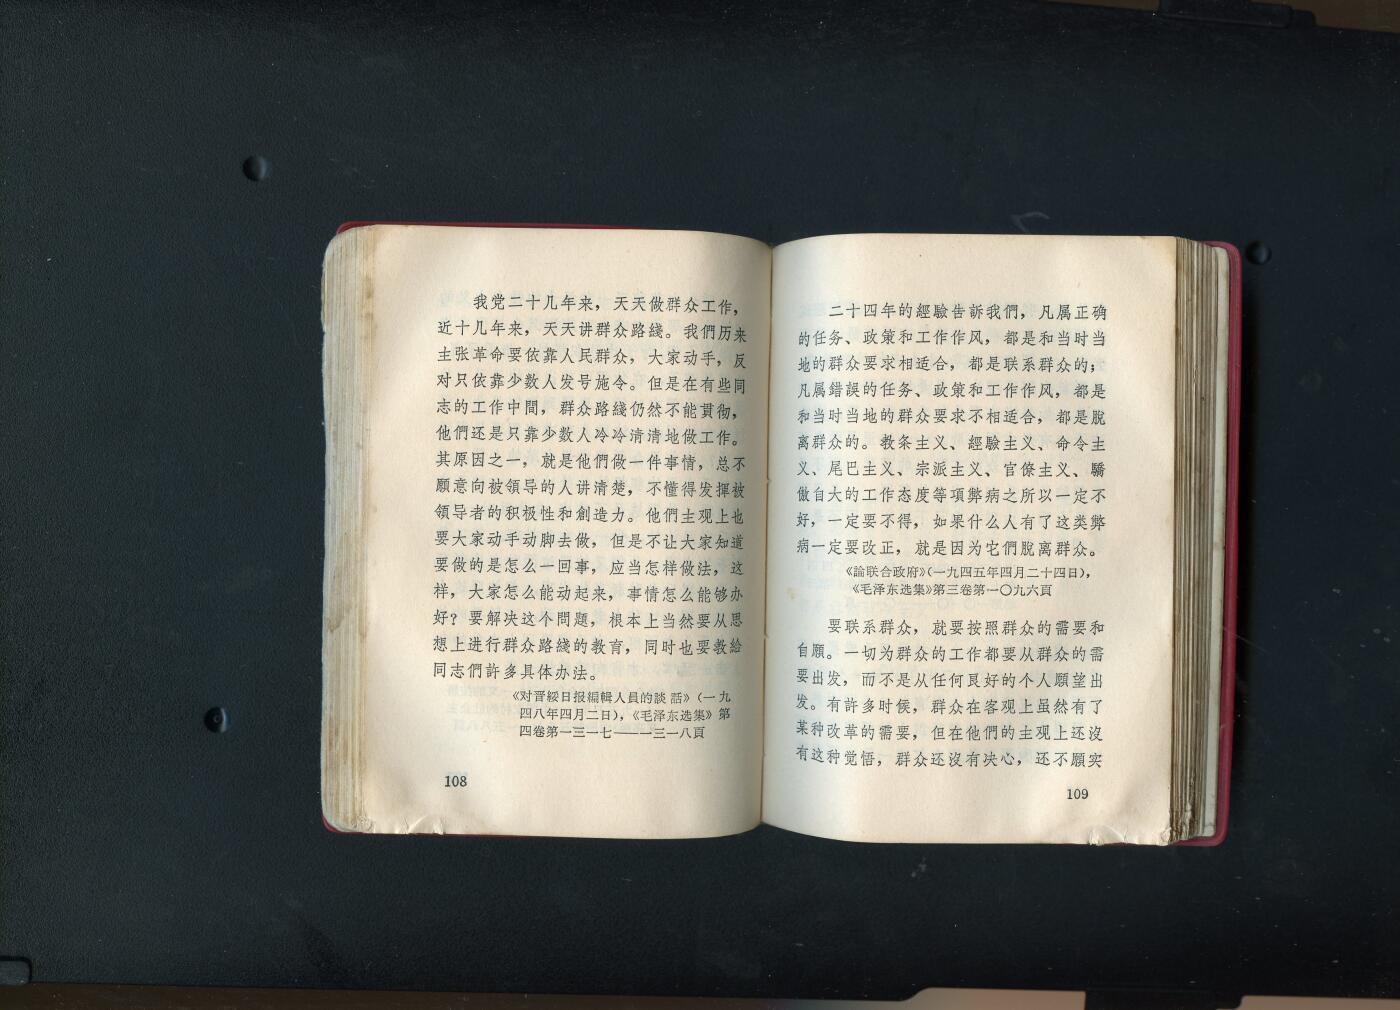 我党二十几年来，天天做群众工作，
近十几年来，天天讲群众路綫。我們历来
主张革命要依靠人民群众，大家动手，反
对只依靠少数人发号施令。但是在有些同
志的工作中間，群众路綫仍然不能貫彻，
他們还是只靠少数人冷冷清清地做工作。
其原因之一，就是他們做一件事情，总不
願意向被領导的人讲清楚，不懂得发揮被
領导者的积极性和創造力。他們主观上也
要大家动手动脚去做，但是不让大家知道
要做的是怎么一回事，应当怎样做法，这
样，大家怎么能动起来，事情怎么能够办
好？要解决这个問題，根本上当然要从思
想上进行群众路綫的教育，同时也要教給
同志們許多具体办法。
《对晋綏日报編輯人員的談話》（一九
四八年四月二日），《毛泽东选集》第
四卷第一三一七——一三一八頁
108
二十四年的經驗告訴我們，凡属正确
的任务、政策和工作作风，都是和当时当
地的群众要求相适合，都是联系群众的；
凡属錯誤的任务、政策和工作作风，都是
和当时当地的群众要求不相适合，都是脫
离群众的。教条主义、經驗主义、命令主
义、尾巴主义、宗派主义、官僚主义、驕
傲自大的工作态度等項弊病之所以一定不
好，一定要不得，如果什么人有了这类弊
病一定要改正，就是因为它們脫离群众。
《論联合政府》（一九四五年四月二十四日），
《毛泽东选集》第三卷第一〇九六頁
要联系群众，就要按照群众的需要和
自願。一切为群众的工作都要从群众的需
要出发，而不是从任何良好的个人願望出
发。有許多时候，群众在客观上虽然有了
某种改革的需要，但在他們的主观上还沒
有这种觉悟，群众还沒有决心，还不願实
109